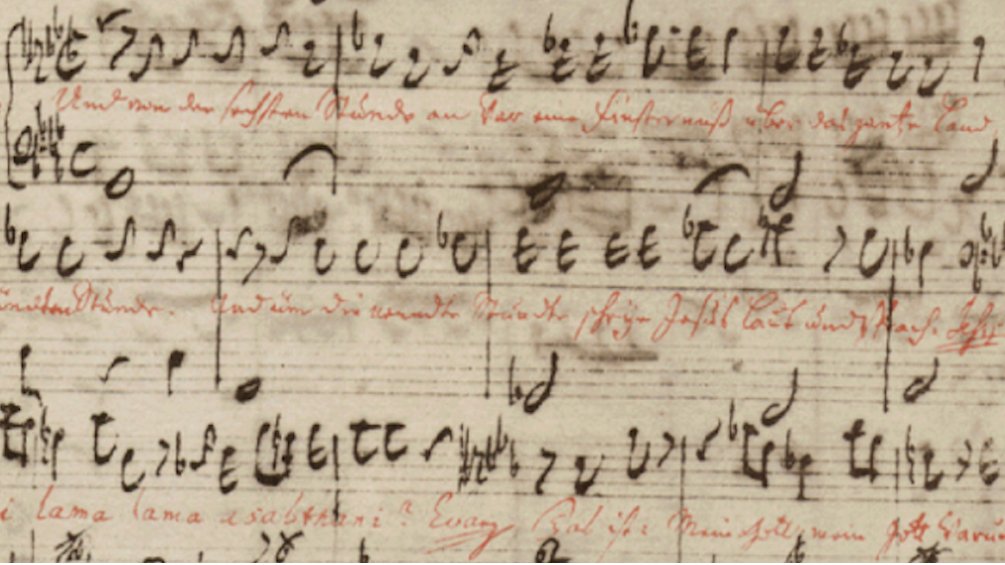 Und von der sechsten Stunde an war eine Finsterniß über das gantze Land
Stunde. Und um die neundte Stunde schrye Jesus laut und sprach:
lama lama asabthani? Evang Das ist: Mein Gott, mein Gott, waru